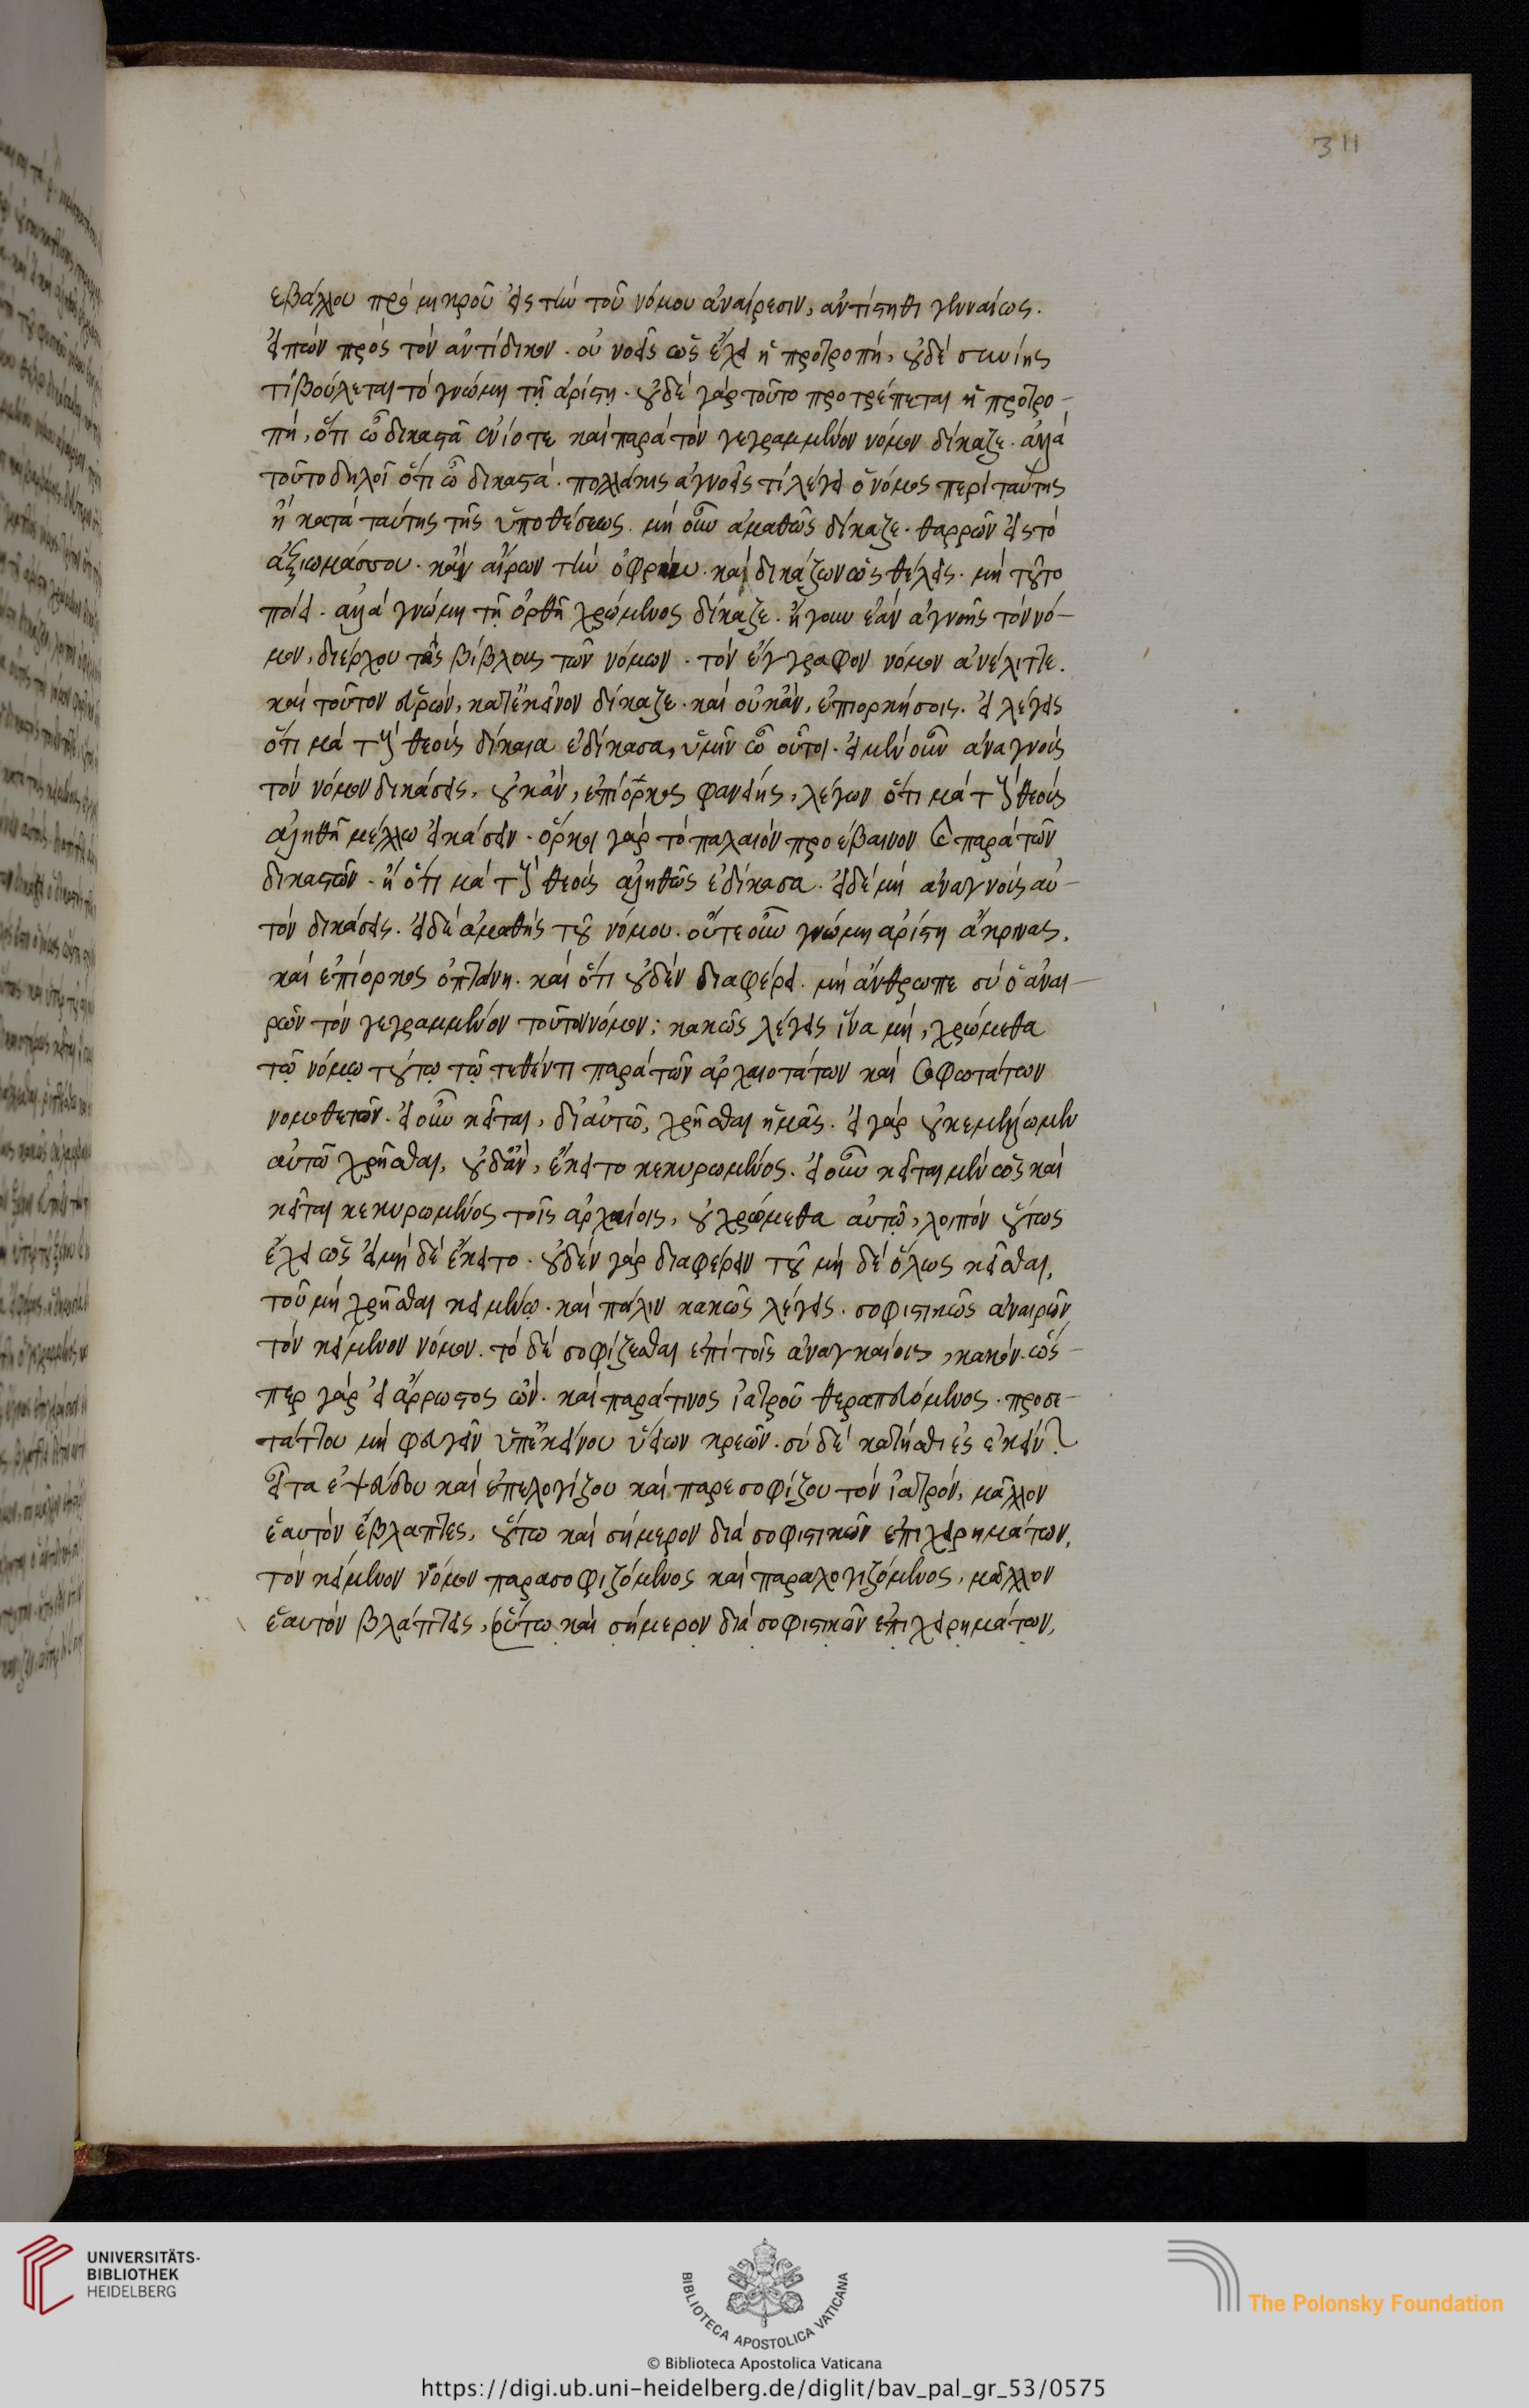 311
εβάλλου πρὸ μικροῦ εἰς τὴν τοῦ νόμου ἀναίρεσιν, ἀντίστηθι γενναίως.
εἰπὼν πρὸς τὸν ἀντίδικον. οὐ νοεῖς ὡς ἔχει ἡ προτροπή, οὐδὲ συνίης
τί βούλεται τὸ γνώμη τῇ ἀρίστῃ. οὐδὲ γὰρ τοῦτο προτρέπεται ἡ προτρο-
πή, ὅτι ὦ δικαστὰ ἐνίοτε καὶ παρὰ τὸν γεγραμμένον νόμον δίκαζε. ἀλλὰ
τοῦτο δηλοῖ ὅτι ὦ δικαστά. πολλάκις ἀγνοεῖς τί λέγει ὁ νόμος περὶ ταύτης
ἢ κατὰ ταύτης τῆς ὑποθέσεως. μὴ οὖν ἀμαθῶς δίκαζε. θαρρῶν εἰς τὸ
ἀξίωμάσσου. κἂν αἴρων τὴν ὀφρὺν. καὶ δικάζων ὡς θέλεις. μὴ τοῦτο
ποίει. ἀλλὰ γνώμη τῇ ὀρθῇ χρώμενος δίκαζε. ἤγουν ἐὰν ἀγνοῇς τὸν νό-
μον, διέρχου τὰς βίβλους τῶν νόμων. τὸν ἔγγραφον νόμον ἀνέλιττε.
καὶ τοῦτον εὑρών, κατ' ἐκεῖνον δίκαζε. καὶ οὐκ ἂν, ἐπιορκήσοις. εἰ λέγεις
ὅτι μὰ τοὺς θεοὺς δίκαια ἐδίκασα, ὑμῖν ὦ οὗτοι. εἰ μὲν οὖν ἀναγνοὺς
τὸν νόμον δικάσεις, οὐκ ἂν, ἐπίορκος φανείης, λέγων ὅτι μὰ τοὺς θεοὺς
ἀληθῆ μέλλω εἰκάσειν. ὅρκοι γὰρ τὸ παλαιὸν προέβαινον παρὰ τῶν
δικαστῶν. ἢ ὅτι μὰ τοὺς θεοὺς ἀληθῶς ἐδίκασα. εἰ δὲ μὴ ἀναγνοὺς αὐ-
τὸν δικάσεις. εἰ δὲ ἀμαθὴς τοῦ νόμου. οὔτε οὖν γνώμη ἀρίστη ἄκρινας,
καὶ ἐπίορκος ὀπτάνη. καὶ ὅτι οὐδὲν διαφέρει. μὴ ἄνθρωπε σὺ ὁ ἀναι-
ρῶν τὸν γεγραμμένον τοῦτον νόμον; κακῶς λέγεις ἵνα μὴ, χρώμεθα
τῷ νόμῳ τούτῳ τῷ τεθέντι παρὰ τῶν ἀρχαιοτάτων καὶ σοφωτάτων
νομοθετῶν. εἰ οὖν κεῖται, δι' αὐτῶ, χρῆσθαι ἡμᾶς. εἰ γὰρ οὐκ ἐμέλλομεν
αὐτῶ χρῆσθαι, οὐδ' ἂν, ἔκειτο κεκυρωμένος. εἰ οὖν κεῖται μὲν ὡς καὶ
κεῖται κεκυρωμένος τοῖς ἀρχαίοις, οὐ χρώμεθα αὐτῷ, λοιπὸν οὕτως
ἔχει ὡς εἰ μὴ δὲ ἔκειτο. οὐδὲν γὰρ διαφέρειν τοῦ μὴ δὲ ὅλως κεῖσθαι,
τοῦ μὴ χρῆσθαι κειμένῳ. καὶ πάλιν κακῶς λέγεις. σοφιστικῶς ἀναιρῶν
τὸν κείμενον νόμον. τὸ δὲ σοφίζεσθαι ἐπὶ τοῖς ἀναγκαίοις, κακόν. ὥσ-
περ γὰρ εἰ ἄρρωστος ὢν. καὶ παρά τινος ἰατροῦ θεραπευόμενος. προσε-
τάττου μὴ φαγεῖν ὑπ' ἐκείνου ὑείων κρεῶν. σὺ δὲ κατήσθιες ἐκείν
εἶτα ἐψεύδου καὶ ἐπελογίζου καὶ παρεσοφίζου τὸν ἰατρόν, μᾶλλον
ἑαυτὸν ἔβλαπτες, οὕτω καὶ σήμερον διὰ σοφιστικῶν ἐπιχειρημάτων,
τὸν κείμενον νόμον παρασοφιζόμενος καὶ παραλογιζόμενος, μᾶλλον
ἑαυτὸν βλάπτεις, οὕτω καὶ σήμερον διὰ σοφιστικῶν ἐπιχειρημάτων,
UNIVERSITÄTS-
BIBLIOTHEK
HEIDELBERG
BIBLIOTECA APOSTOLICA VATICANA
The Polonsky Foundation
© Biblioteca Apostolica Vaticana
https://digi.ub.uni-heidelberg.de/diglit/bav_pal_gr_53/0575